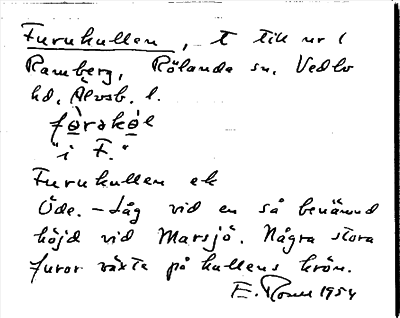 Furukullen, t till nr 1
Ramberg, Rölanda sn. Vedbo
hd, Älvsb. l.
førəkøl
"i F."
Furukullen ek
Öde. – Låg vid en så benämnd
höjd vid Marsjö. Några stora
furor växte på kullens krön.
E. 1954